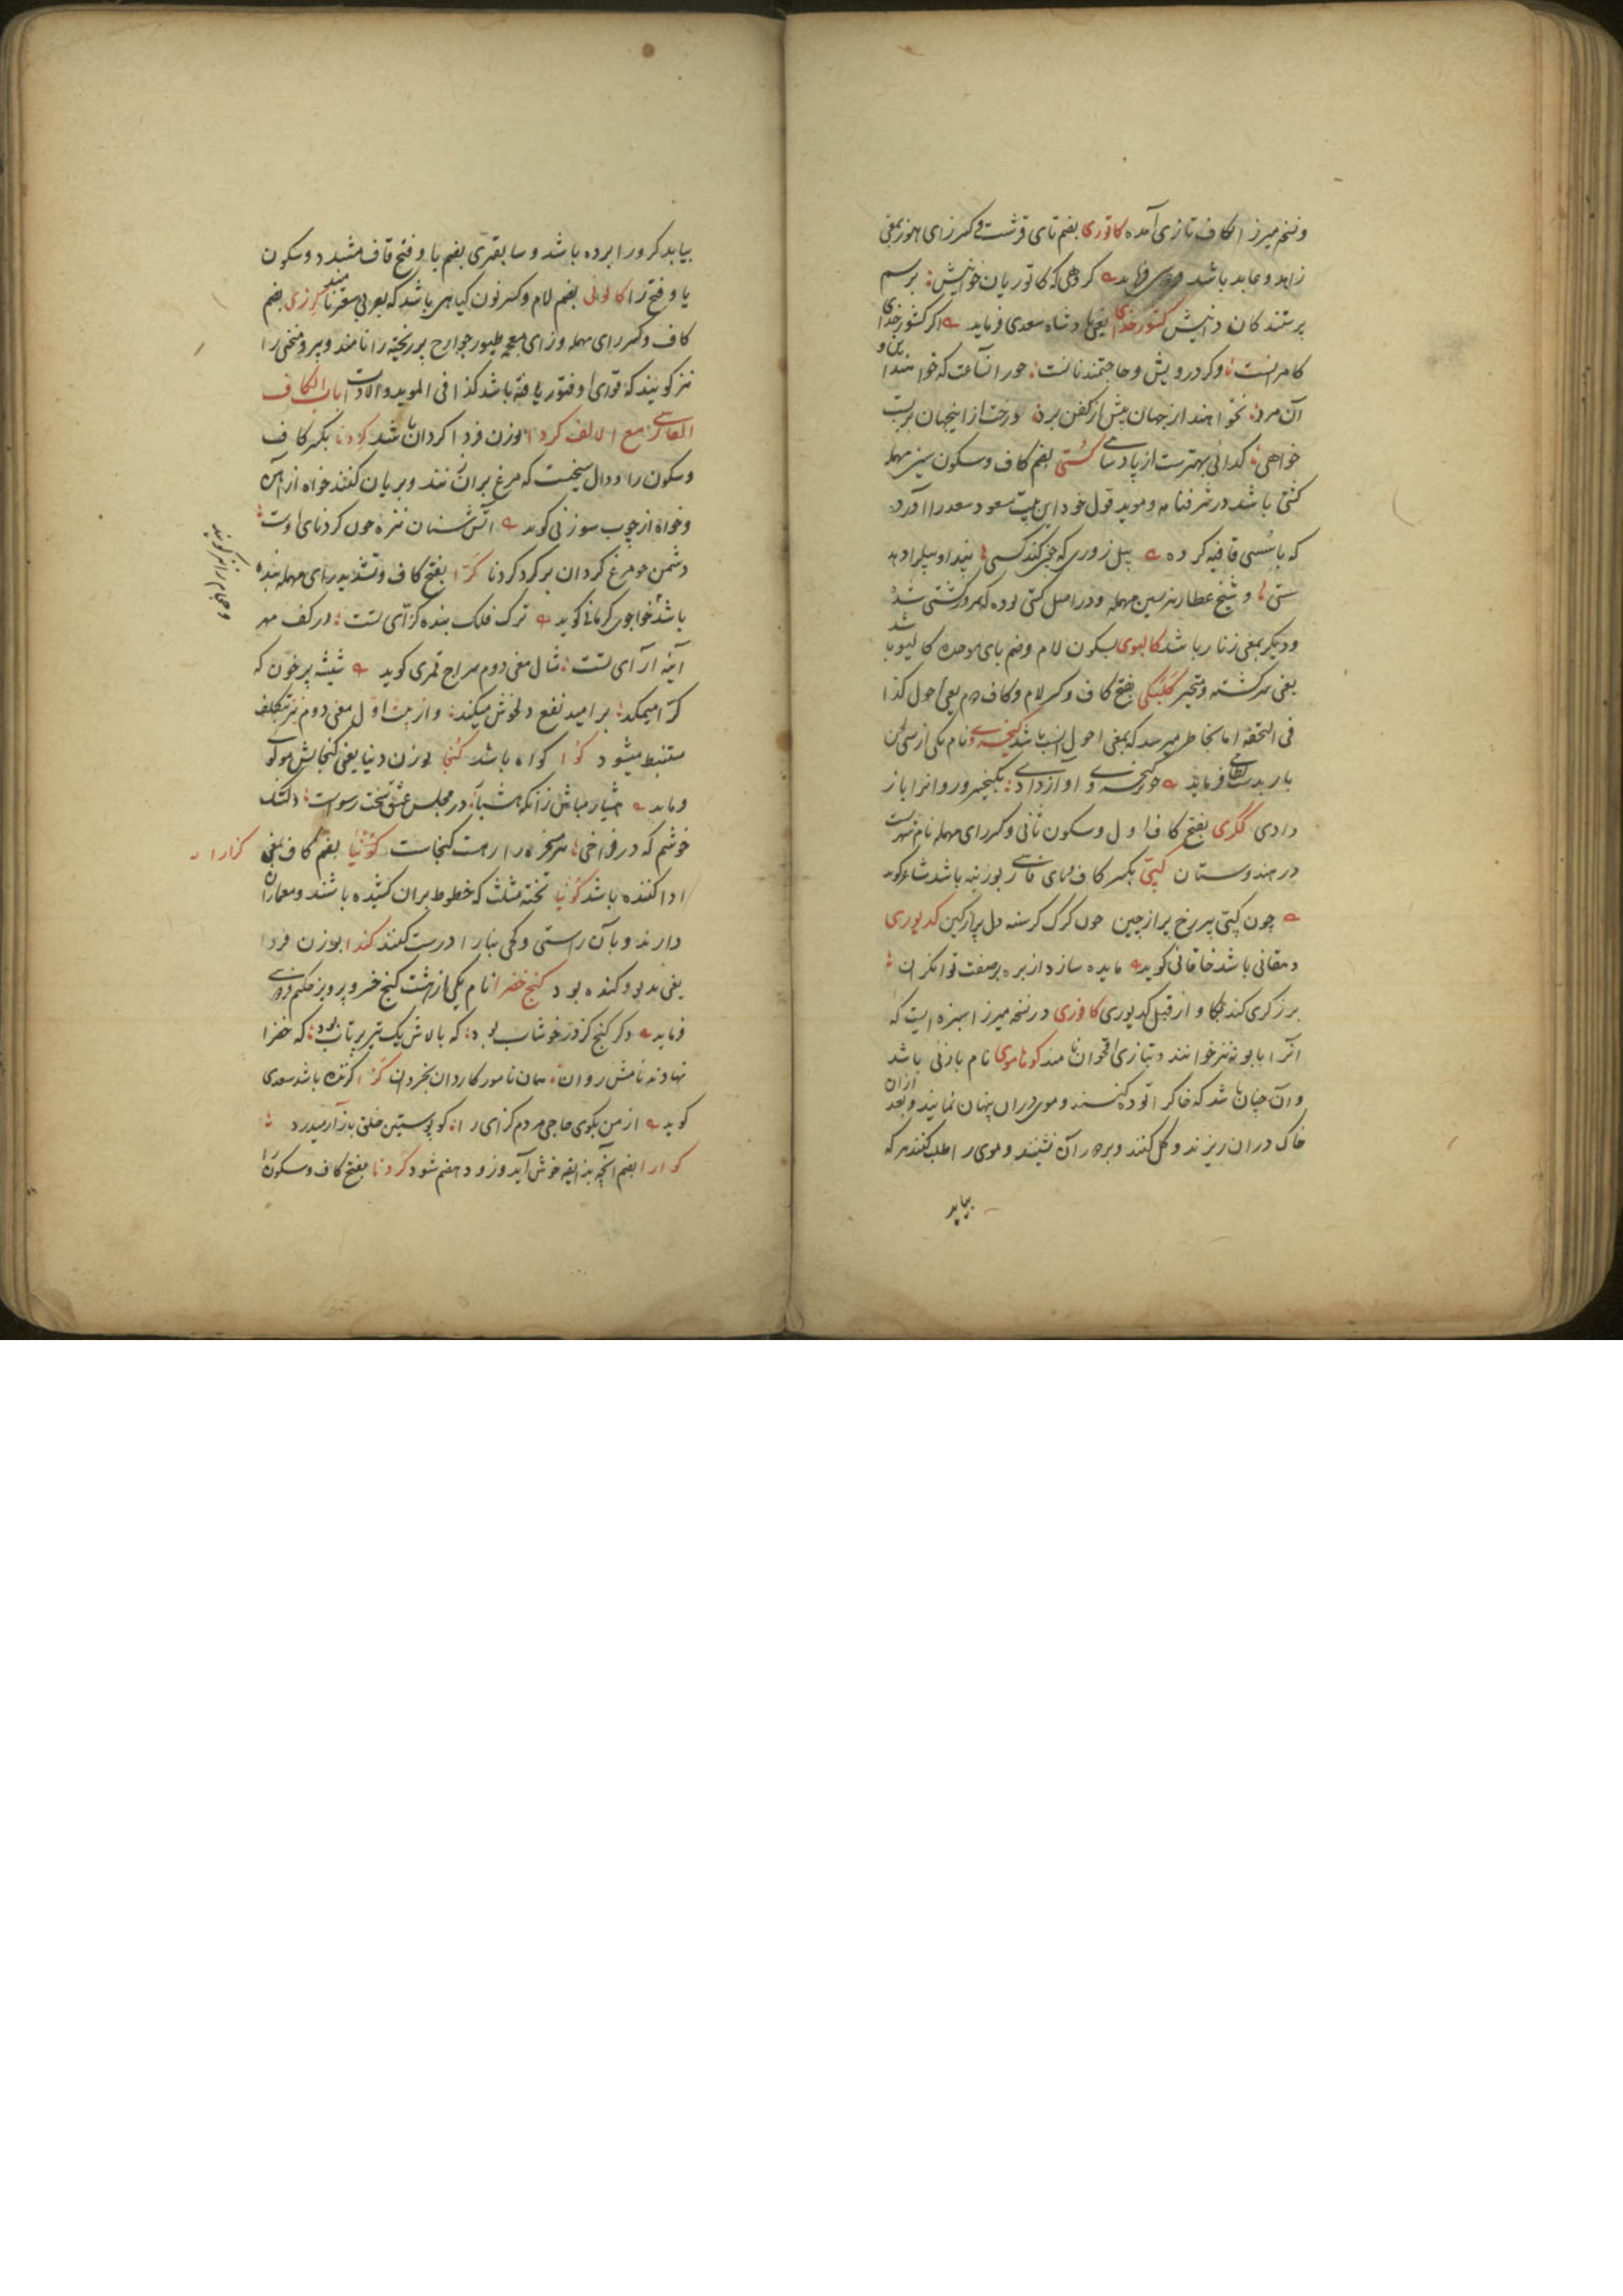 و نسخه میرزا کاف تازی آمده کاتوزی بضم تای قرشت و کسر زای هوز بمعنی
زاهد و عابد باشد فردوسی فرماید گروهی که کاتوزیان خوانیش برسم
پرستندگان دانیش کشورخدای یعنی پادشاه سعدی فرماید اگر کشور خدای
کامرانست وگر درویش و حاجتمند نانست در آن ساعت که خواهند این و
آن مرد نخواهند از جهان بیش از کفن برد چو رخت از این جهان بربست
خواهی گدائی بهترست از پادشاهی کستی بضم کاف و سکون سین مهمله
کشتی باشد در شرفنامه و موید قول خود این بیت مسعود سعد را آورده
که با سستی قافیه کرده پیل زوری که چون کند کستی بند او پیل را دهد
سستی و شیخ عطار نیز بسین مهمله و در اصل کستی بوده که بمرور کشتی شد
و دیگر بمعنی زنار باشد کالیوی بسکون لام و ضم یای موحده کالیوه باشد
یعنی سرگشته و متحیر کلیکی بفتح کاف و کسر لام و کاف دوم یعنی احول کذا
فی التحفه اما بخاطر میرسد که بمعنی احولی انسب باشد کیخسروی نام یکی از سی لحن
باربد نظامی فرماید چو کیخسروی آواز دادی بکیخسرو روانرا باز
دادی ککری بفتح کاف اول و سکون ثانی و کسر رای مهمله نام شهریست
در هندوستان کپی بکسر کاف و بای فارسی بوزینه باشد شاعر گوید
چون کپی پیر رخ پر از چین چون گرگ گرسنه دل پر از کین کدیوری
دهقانی باشد خاقانی گوید مایده سازد از بره بر صفت توانگران
برزگری کند بگاو از قبل کدیوری کاوزی در نسخه میرزا سبزه ایست که
آنرا بابونه نیز خوانند و بتازی اقحوان نامند کوهاموی نام بازئی باشد
و آن چنان باشد که خاک را توده کنند و موی در آن پنهان نمایند و بعد از آن
خاک در آن ریزند و گل کنند و بر دور آن نشینند و موی را طلب کنند هر که
بیابد
بیابد گرو را برده باشد و سابقتری بضم با و فتح قاف مشدد و سکون
یا و فتح را کالونی بضم لام و کسر نون گیاهی باشد که بعربی صعتر نامند کرزی بضم
کاف و کسر رای مهمله و زای معجمه طیور جوارح پر ریخته را نامند و پیر و منحنی را
نیز گویند که قوای او فتور یافته باشد کذا فی الموید و الادات باب الکاف
الفارسی مع الالف کردا بوزن فردا گردان باشد کردنا بکسر کاف
و سکون را و دال سیخیست که مرغ بر آن نهند و بریان کنند خواه از آهن
و خواه از چوب سوزنی گوید آتش سنان نیزه چون گردنای اوست
دشمن چو مرغ گردان بر گرد گردنا کرّا بفتح کاف و تشدید رای مهمله بنده
باشد خواجوی کرمانی گوید ترک فلک بنده کرّای تست در کف مهر
آینه آرای تست مثال معنی دوم سراج قمری گوید شیشه پر خون که
کرّا میمکد بر امید نفع دلخوش میکند و از بیت اول معنی دوم نیز بتکلف
مستنبط میشود کوا گواه باشد کنجا بوزن دنیا یعنی گنجایش مولوی
فرماید هشیار مباش زانکه هشیار در مجلس عشق سخت رسواست دلتنگ
خوشم که در فراخی هر مسخره را رهست و گنجاست کویا بضم کاف بمعنی گزارا
ادا کننده باشد کونیا تخته مثلث که خطوط بر آن کشیده باشند و معماران
دارند و بآن راستی و کجی بنا را درست کنند کندا بوزن فردا
یعنی بد بو و گنده بود کنج خضرا نام یکی از هشت گنج خسرو پرویز حکیم فردوسی
فرماید دگر گنج کز در خوشاب بود که بالاش یک تیر پرتاب بود که خضرا
نهادند نامش روان همان نامور کاردان بخردان کزا گزنده باشد سعدی
گوید از من بگوی حاجی مردم گزای را کو پوستین خلق بآزار میدرد
کوارا بضم آنچه بذائقه خوش آید و زود هضم شود کردنا بفتح کاف و سکون را
و حجام را نیز گویند